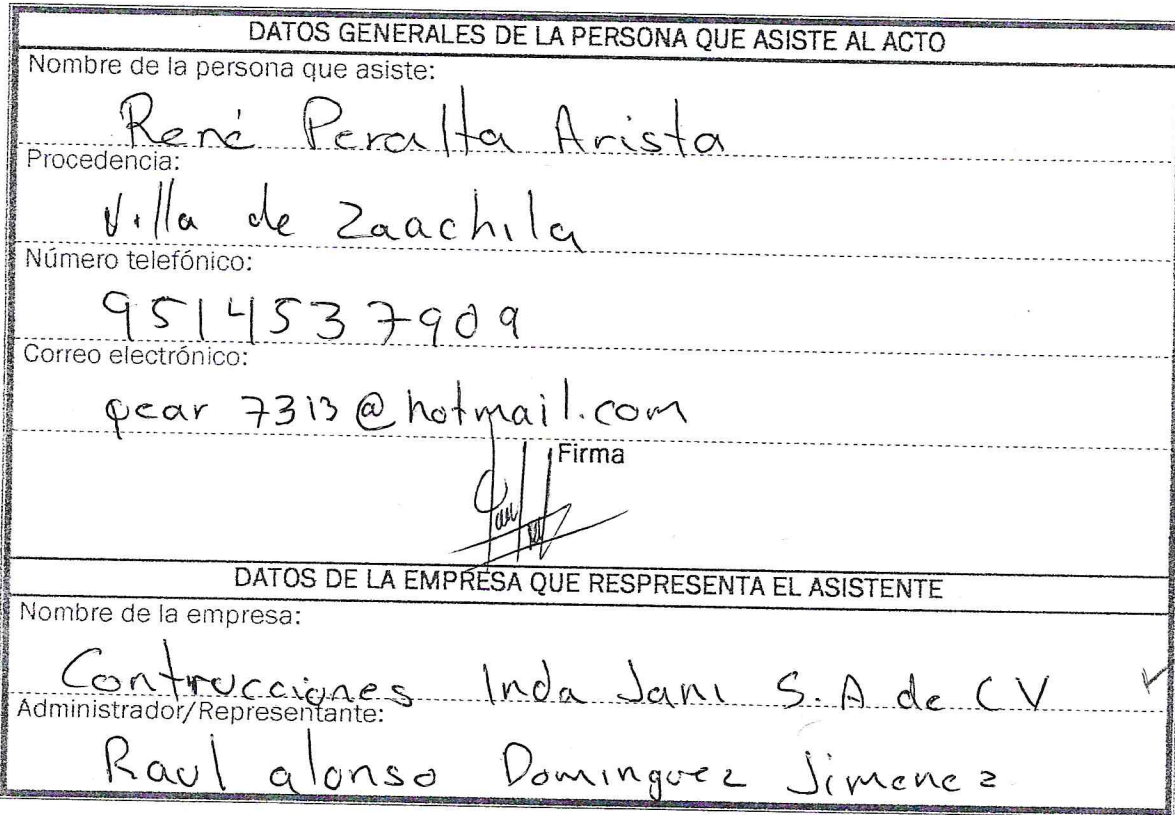 DATOS GENERALES DE LA PERSONA QUE ASISTE AL ACTO
Nombre de la persona que asiste:
René Peralta Arista
Procedencia:
Villa de Zaachila
Número telefónico:
9514537909
Correo electrónico:
pear 7313@hotmail.com
Firma
DATOS DE LA EMPRESA QUE RESPRESENTA EL ASISTENTE
Nombre de la empresa:
Contrucciones Inda Jani S.A de CV
Administrador/Representante:
Raul alonso Dominguez Jimenez